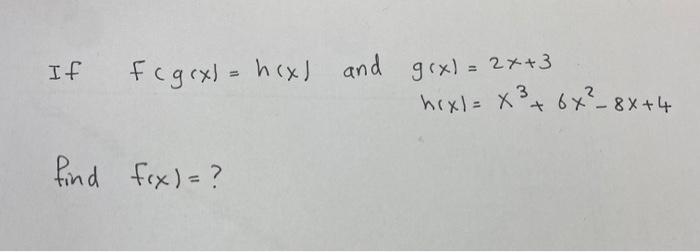 If f(g(x) = h(x) and g(x) = 2x+3
h(x) = x³ + 6x² - 8x + 4
find f(x) = ?